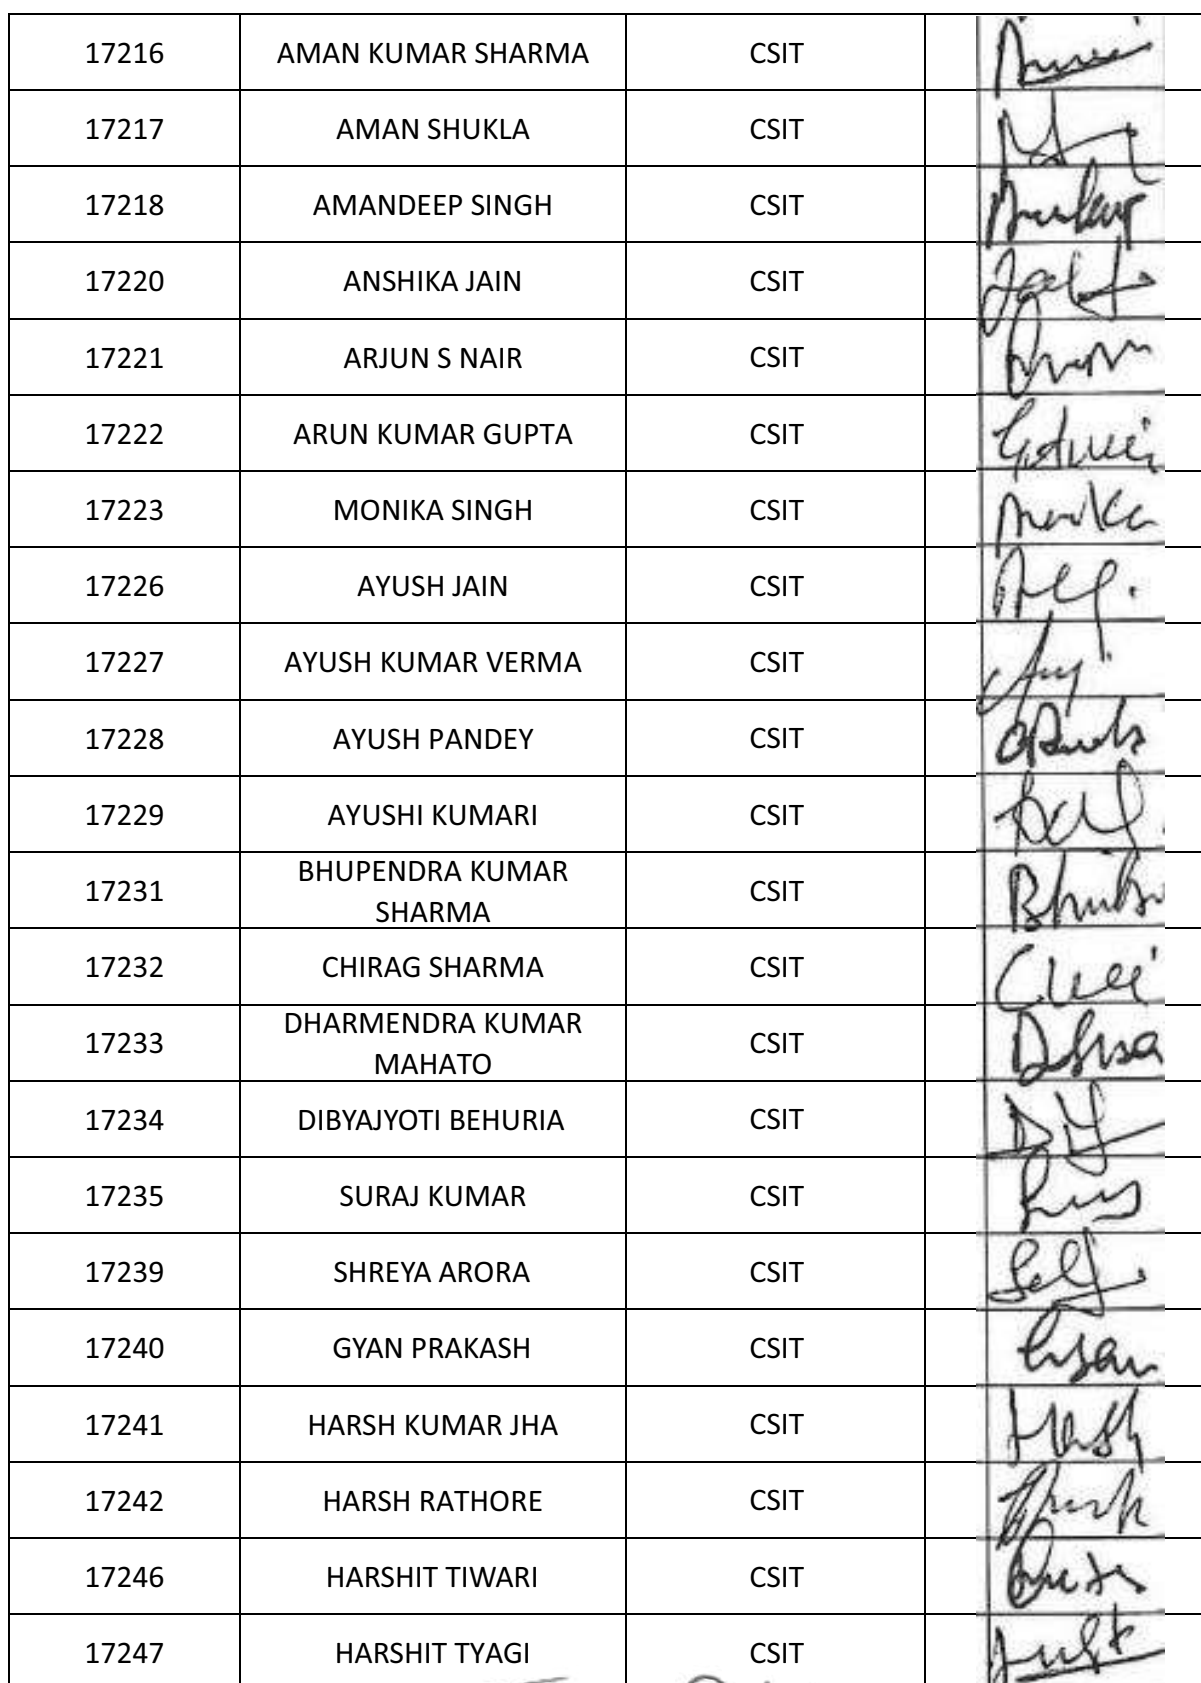 17216 AMAN KUMAR SHARMA CSIT
17217 AMAN SHUKLA CSIT
17218 AMANDEEP SINGH CSIT
17220 ANSHIKA JAIN CSIT
17221 ARJUN S NAIR CSIT
17222 ARUN KUMAR GUPTA CSIT
17223 MONIKA SINGH CSIT
17226 AYUSH JAIN CSIT
17227 AYUSH KUMAR VERMA CSIT
17228 AYUSH PANDEY CSIT
17229 AYUSHI KUMARI CSIT
17231 BHUPENDRA KUMAR
SHARMA CSIT
17232 CHIRAG SHARMA CSIT
17233 DHARMENDRA KUMAR
MAHATO CSIT
17234 DIBYAJYOTI BEHURIA CSIT
17235 SURAJ KUMAR CSIT
17239 SHREYA ARORA CSIT
17240 GYAN PRAKASH CSIT
17241 HARSH KUMAR JHA CSIT
17242 HARSH RATHORE CSIT
17246 HARSHIT TIWARI CSIT
17247 HARSHIT TYAGI CSIT